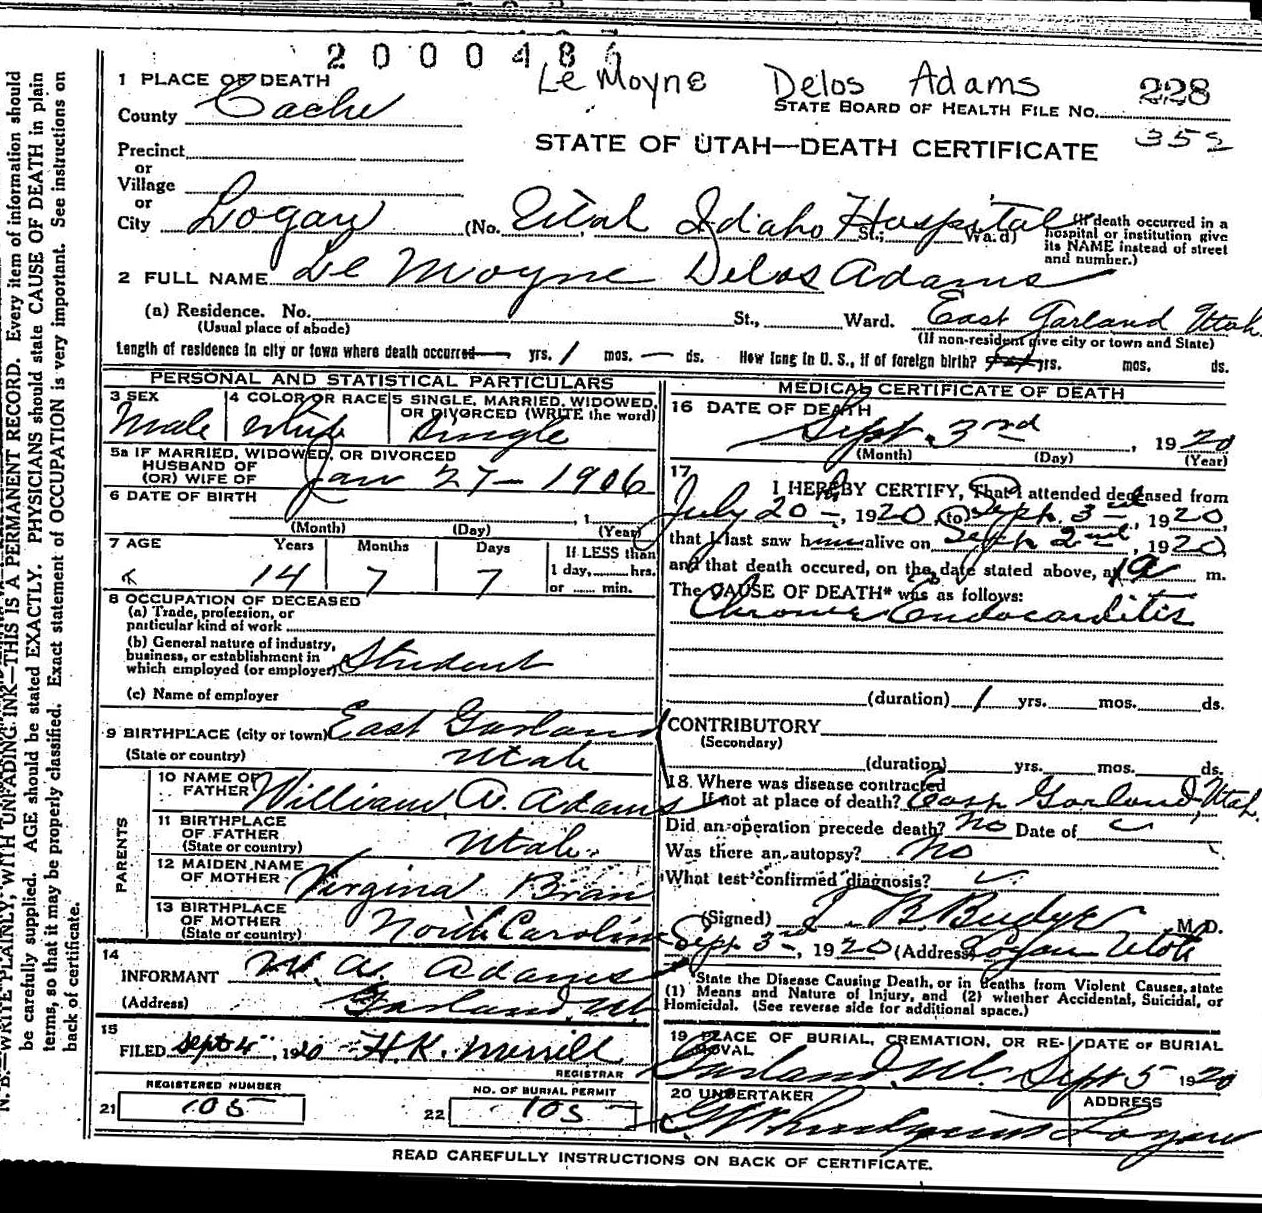 2000486
Le Moyne Delos Adams
228
1 PLACE OF DEATH
STATE BOARD OF HEALTH FILE NO.
County Cache
352
STATE OF UTAH—DEATH CERTIFICATE
Precinct
or
Village
or
City Logan (No. Utah Idaho Hospital St.; Ward) (If death occurred in a
hospital or institution give
its NAME instead of street
and number.)
2 FULL NAME Le Moyne Delos Adams
(a) Residence. No. St., Ward. East Garland Utah.
(Usual place of abode) (If non-resident give city or town and State)
Length of residence in city or town where death occurred — yrs. 1 mos. — ds. How long in U. S., if of foreign birth? yrs. mos. ds.
PERSONAL AND STATISTICAL PARTICULARS
3 SEX
Male
4 COLOR OR RACE
White
5 SINGLE, MARRIED, WIDOWED,
OR DIVORCED (WRITE the word)
Single
5a IF MARRIED, WIDOWED, OR DIVORCED
HUSBAND OF
(OR) WIFE OF
Jan 27 - 1906
6 DATE OF BIRTH
, 1
(Month) (Day) (Year)
7 AGE Years Months Days If LESS than
14 7 7 1 day, hrs.
or min.
8 OCCUPATION OF DECEASED
(a) Trade, profession, or
particular kind of work
(b) General nature of industry,
business, or establishment in
which employed (or employer) Student
(c) Name of employer
9 BIRTHPLACE (city or town) East Garland
(State or country) Utah
PARENTS
10 NAME OF
FATHER William A. Adams
11 BIRTHPLACE
OF FATHER
(State or country) Utah
12 MAIDEN NAME
OF MOTHER Virgina Bran
13 BIRTHPLACE
OF MOTHER
(State or country) North Carolina
14
INFORMANT W. A. Adams
(Address) Garland, Ut
15
FILED Sept 4, 1920 H. K. Merrill
REGISTRAR
REGISTERED NUMBER
21 105
NO. OF BURIAL PERMIT
22 105
MEDICAL CERTIFICATE OF DEATH
16 DATE OF DEATH
Sept. 3rd, 1920
(Month) (Day) (Year)
17
I HEREBY CERTIFY, That I attended deceased from
July 20th, 1920, to Sept. 3rd, 1920,
that I last saw him alive on Sept 2nd, 1920,
and that death occured, on the date stated above, at 1 a m.
The CAUSE OF DEATH* was as follows:
Chronic Endocarditis
(duration) 1 yrs. mos. ds.
CONTRIBUTORY
(Secondary)
(duration) yrs. mos. ds.
18. Where was disease contracted
If not at place of death? East Garland, Utah.
Did an operation precede death? no Date of
Was there an autopsy? no
What test confirmed diagnosis?
(Signed) T. B. Budge M. D.
Sept 3rd, 1920 (Address) Logan Utah
*State the Disease Causing Death, or in Deaths from Violent Causes, state
(1) Means and Nature of Injury, and (2) whether Accidental, Suicidal, or
Homicidal. (See reverse side for additional space.)
19 PLACE OF BURIAL, CREMATION, OR RE-
MOVAL
Garland, Ut.
DATE OF BURIAL
Sept 5 1920
20 UNDERTAKER
ADDRESS
Logan
READ CAREFULLY INSTRUCTIONS ON BACK OF CERTIFICATE.
N. B.—WRITE PLAINLY, WITH UNFADING INK—THIS IS A PERMANENT RECORD. Every item of information should
be carefully supplied. AGE should be stated EXACTLY. PHYSICIANS should state CAUSE OF DEATH in plain
terms, so that it may be properly classified. Exact statement of OCCUPATION is very important. See instructions on
back of certificate.